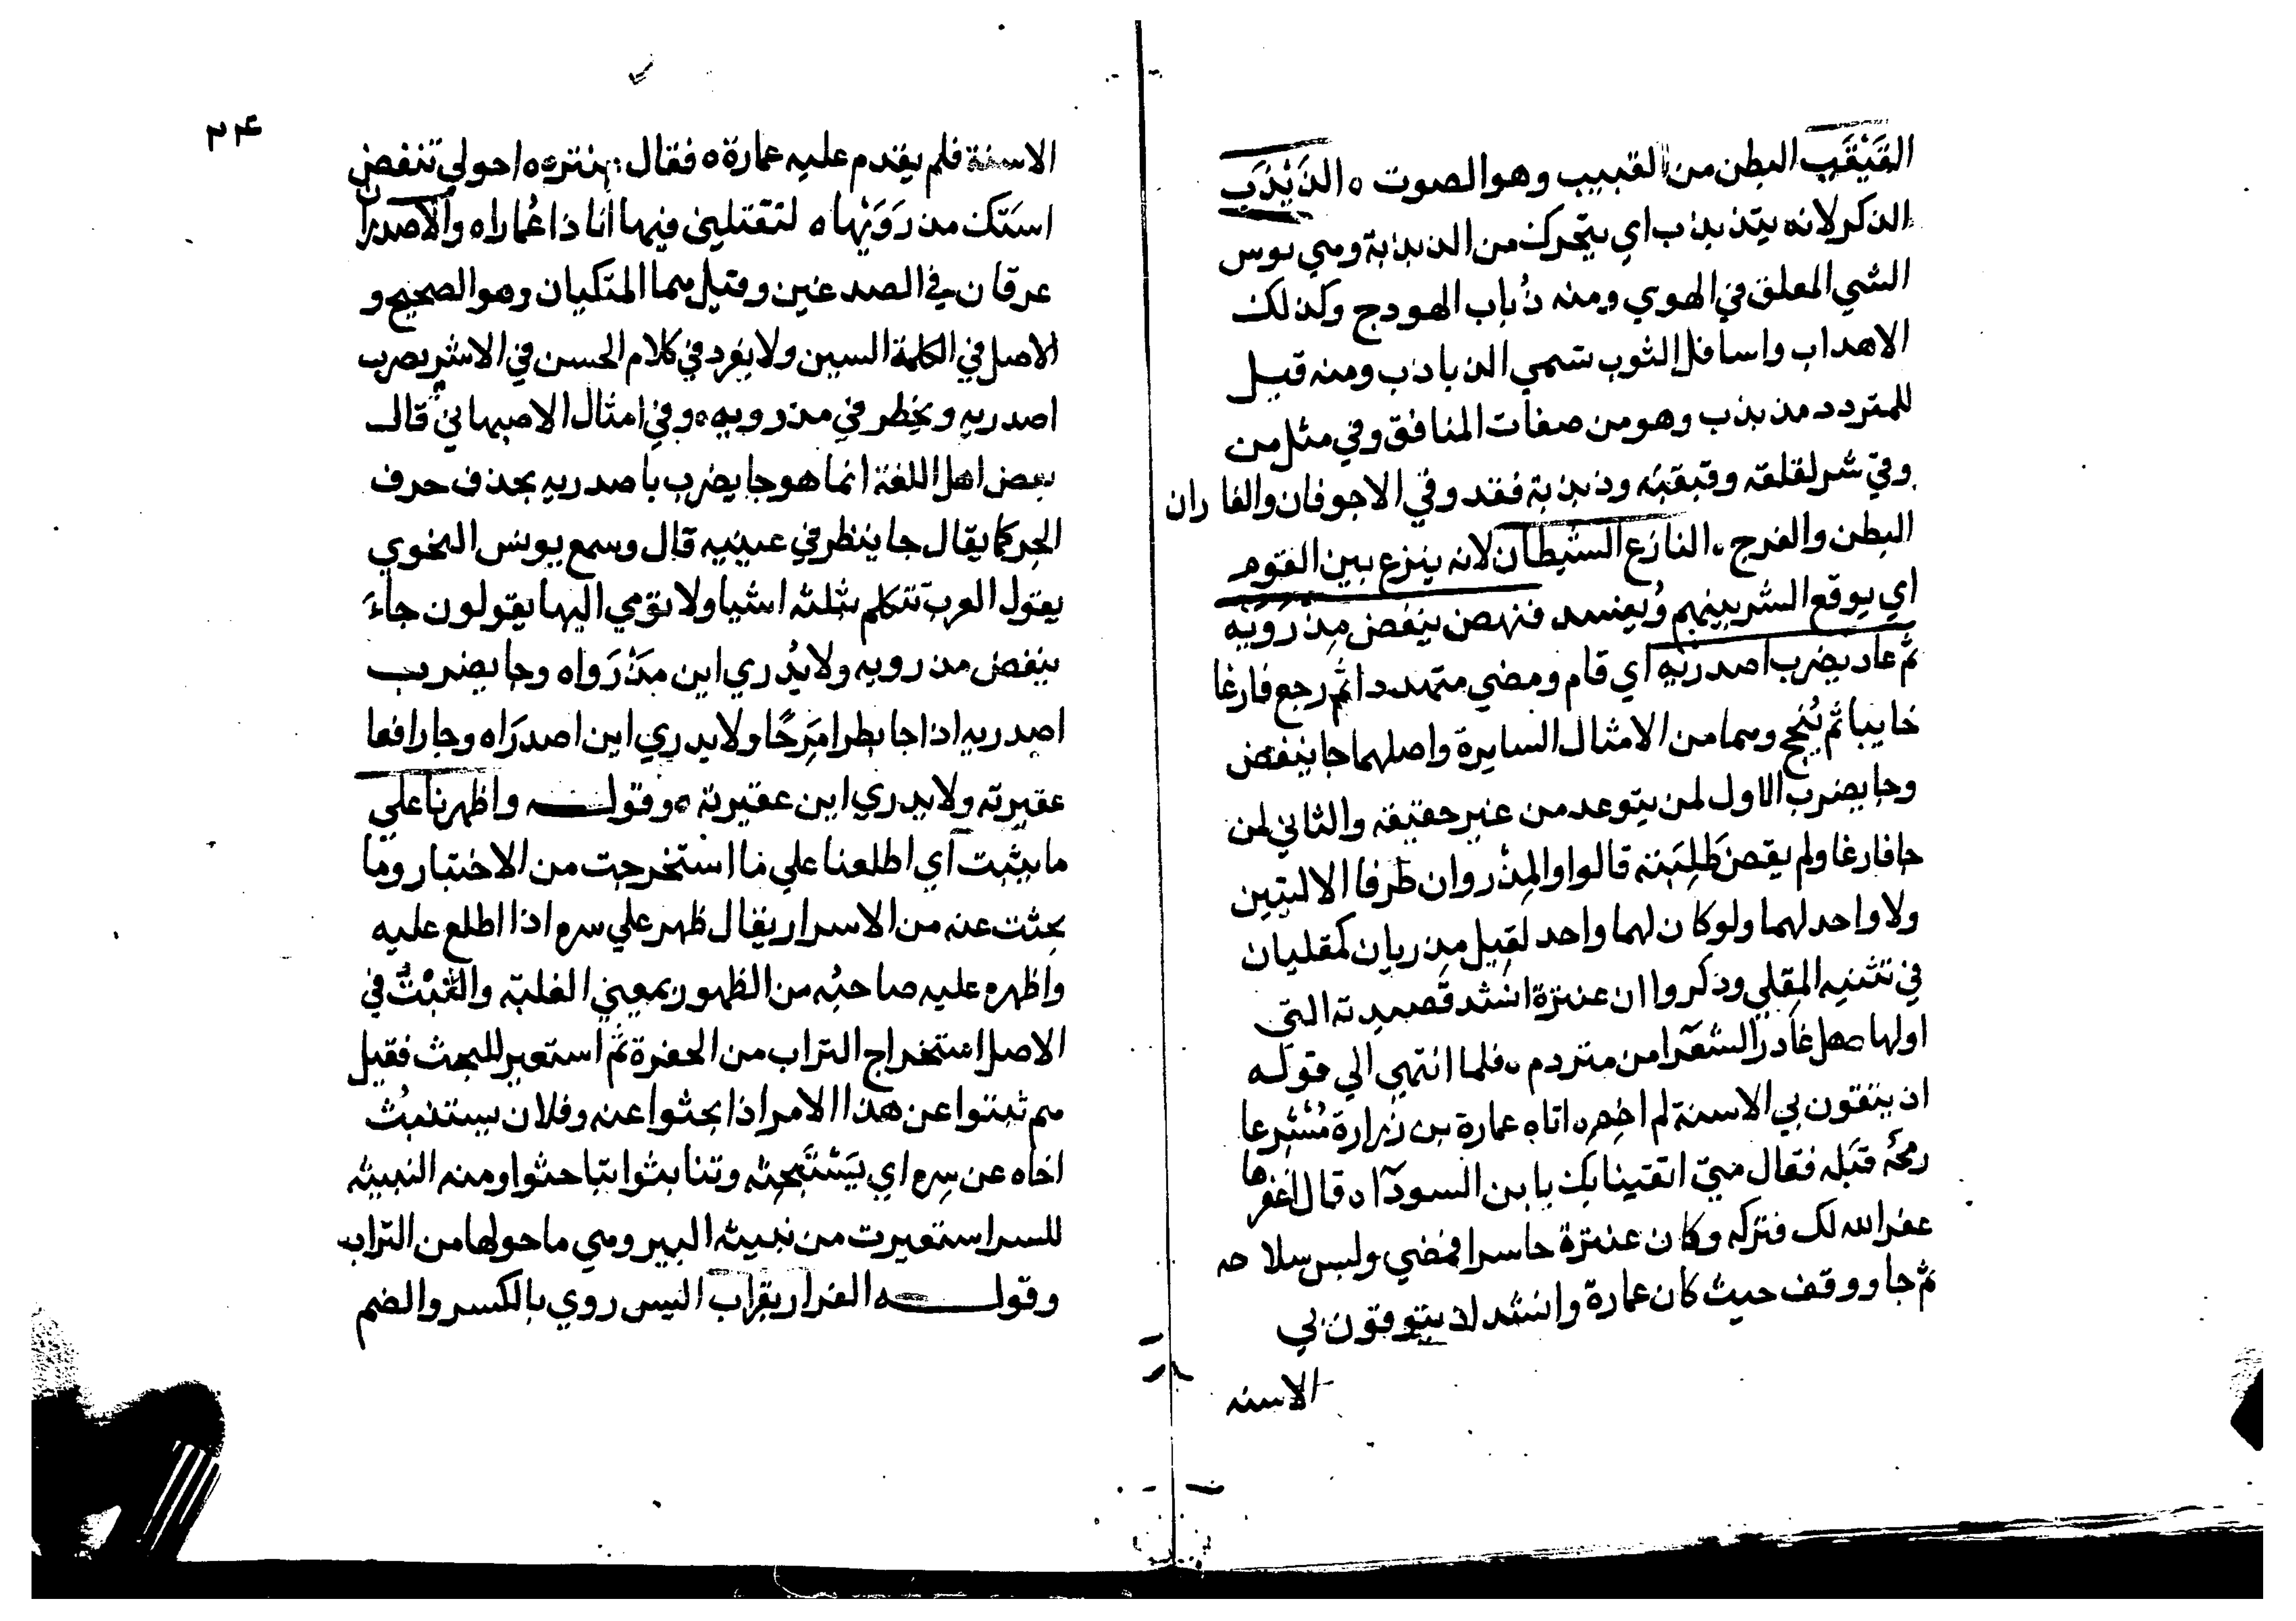 القَبْقَب البطن من القبيب وهو الصوت ه الذَبْذَب
الذكر لانه يتذبذب اي يتحرك من الذبذبة وهي نوس
الشي المعلق في الهوي ومنه ذُباب الهودج وكذلك
الاهداب واسافل الثوب تسمي الذباذب ومنه قيل
للمتردد مذبذب وهو من صفات المنافق وفي مثل من
وقي شر لقلقه وقبقبه وذبذبه فقد وقي الاجوفان والغاران
البطن والفرج ه النازع الشيطان لانه ينزع بين القوم
اي يوقع الشر بينهم ويُفسد فنهض ينفض مِذْرَوَيْهِ
ثم عاد يضرب اصدريه اي قام ومضي متهددا ثم رجع فارغا
خايبا ثم يُنجح وهما من الامثال السايرة واصلهما جا ينفض
وجا يضرب الاول لمن يتوعد من غير حقيقه والثاني لمن
جا فارغا ولم يقض طَلِبَته قالوا والمِذْروان طرفا الاليتين
ولا واحد لهما ولو كان لهما واحد لقيل مذريان كمقليان
في تثنيه المِقلي وذكروا ان عنترة انشد قصيدته التي
اولها هل غادر الشعرا من متردم ه فلما انتهي الي قوله
اذ يتقون بي الاسنة لم اخم ه اتاه عمارة بن زرارة مُشْرعا
رمحَه قبَله فقال متي اتقينا بك يا بن السودآء قال اغفرها
غفر الله لك فتركه وكان عنترة حاسرا فمضي ولبس سلاحه
ثم جا ووقف حيث كان عمارة وانشد اذ يتوقون بي
الاسنه
٢٤
الاسنة فلم يقدم عليه عمارة ه فقال عنتره ه احولي تنفض
اسَتك مذرَوَيْها ه لتقتلني فيها انا ذا عُماراه والاصدران
عرقان في الصدغين وقيل هما المنكبان وهو الصحيح و
الاصل في الكلمة السين ولا يفرد في كلام الحسن في الاشر يضرب
اصدريه ويخطر في مذرويه ه وفي امثال الاصبهاني قال
بعض اهل اللغة انما هو جا يضرب باصدريه بحذف حرف
الجر كما يقال جا ينظر في عينيه قال وسمع يونس النحوي
يقول العرب تتكلم بثلثه اشيا ولا تؤمي اليها يقولون جاءَ
ينفض مذرويه ولا يُدري اين مذْرَواه وجا يضرب
اصدريه اذا جا بطرا مَرِحًا ولا يدري اين اصدرَاه وجا رافعا
عقيرته ولا يدري اين عقيرته ه وقوله واظهرنا علي
ما نبثت اي اطلعنا علي ما استخرجت من الاختبار وما
بحثت عنه من الاسرار يقال ظهر علي سره اذا اطلع عليه
واظهره عليه صاحبُه من الظهور بمعني الغلبة والنَبْثُ في
الاصل استخراج التراب من الحفرة ثم استعير للبحث فقيل
هم نبثوا عن هذا الامر اذا بحثوا عنه وفلان يستنبُث
اخاه عن سره اي يَسْتَبحِثه وتنابثوا تباحثوا ومنه النبيثه
للسر استعيرت من نبيثه البير وهي ما حولها من التراب
وقوله الفرار بقراب اكيس روي بالكسر والضم